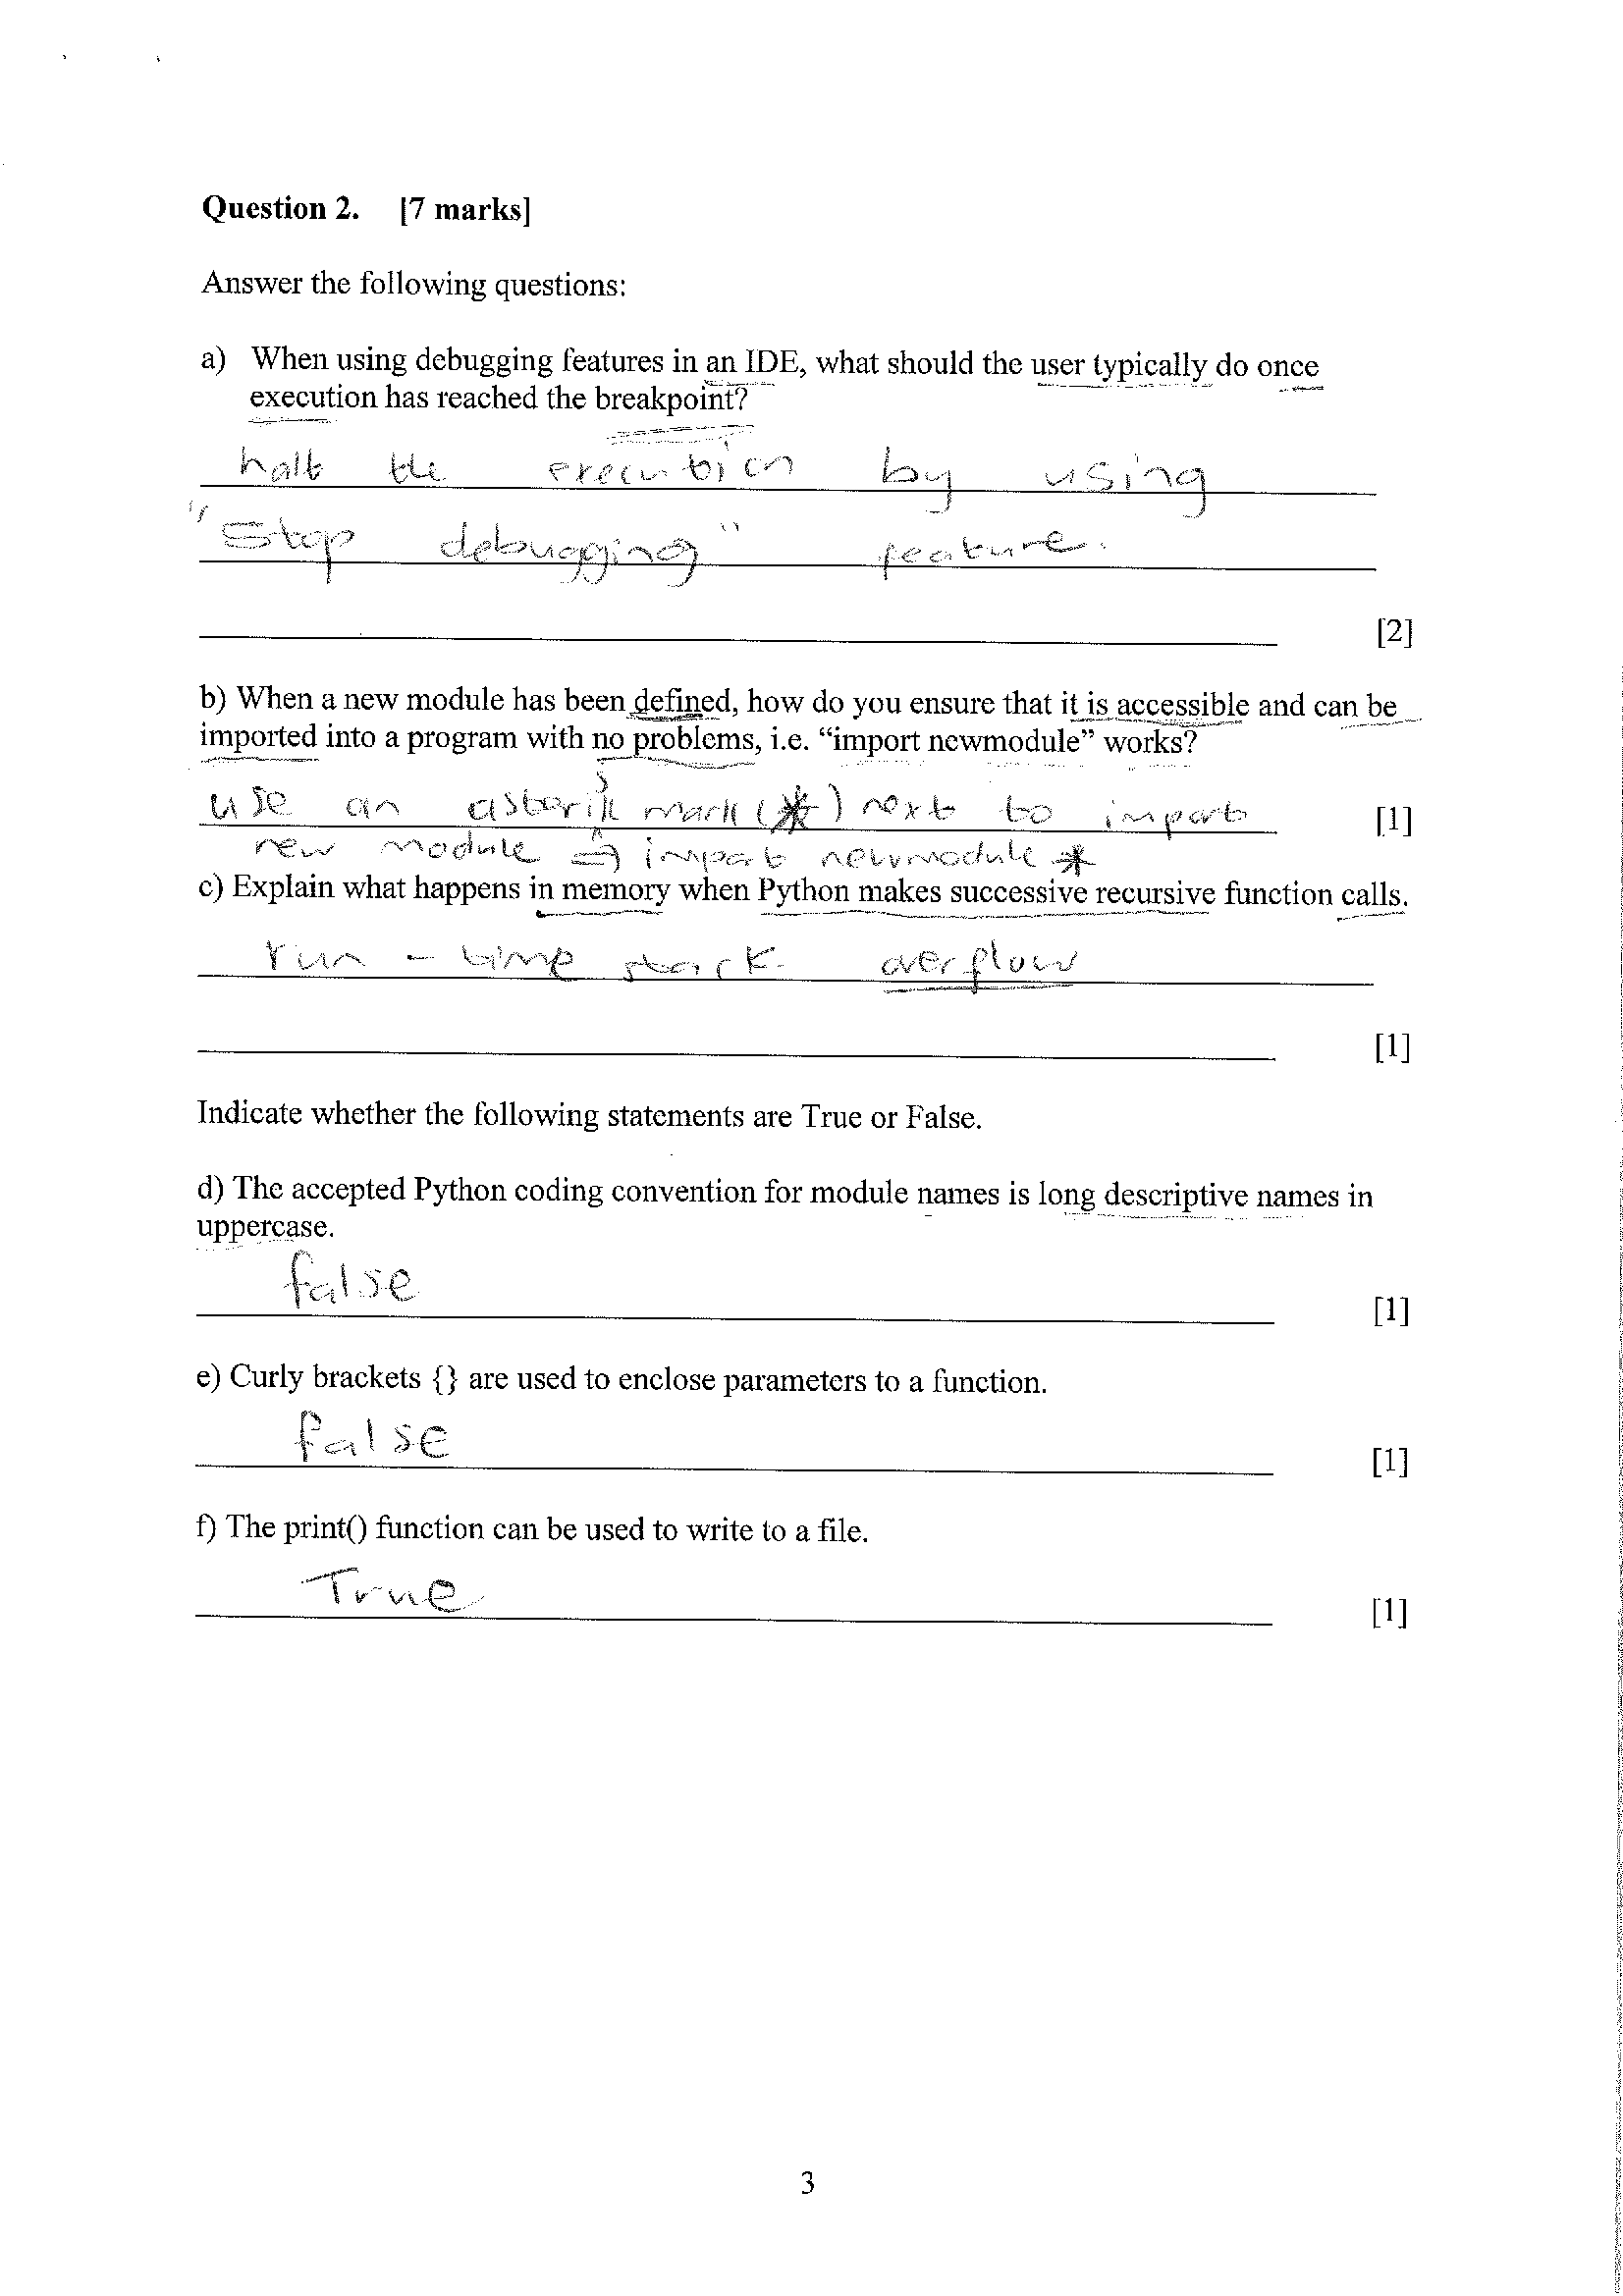 Question 2. [7 marks]
Answer the following questions:
a) When using debugging features in an IDE, what should the user typically do once
execution has reached the breakpoint?
halt the execution by using
"Stop debugging" feature.
[2]
b) When a new module has been defined, how do you ensure that it is accessible and can be
imported into a program with no problems, i.e. “import newmodule” works?
use an asterik mark (*) next to import [1]
new module ⇒ import newmodule *
c) Explain what happens in memory when Python makes successive recursive function calls.
run - time stack overflow
[1]
Indicate whether the following statements are True or False.
d) The accepted Python coding convention for module names is long descriptive names in
uppercase.
false
[1]
e) Curly brackets {} are used to enclose parameters to a function.
false
[1]
f) The print() function can be used to write to a file.
True
[1]
3